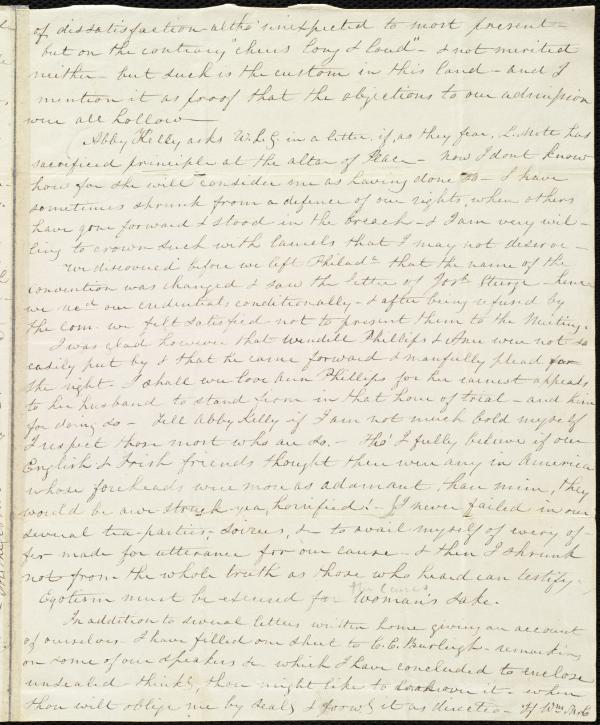 of dissatisfaction altho' unexpected to most present -
but on the contrary "cheers long & loud" - I not merited
neither - but such is the custom in this land - and I
mention it as proof that the objections to our admission
were all hollow -
Abby Kelly asks W.L.G. in a letter, if, as they fear, L. Mott has
sacrificed principle at the altar of Peace - Now I dont know
how far she will consider me as having done so - I have
sometimes shrunk from a defence of our rights, when others
have gone forward & stood in the breach - & I am very wil-
ling to crown such with laurels that I may not deserve -
We discovered before we left Philada. that the name of the
convention was changed & saw the letter of Josh. Sturge - hence
we recd our credentials conditionally - & after being refused by
the com. we felt satisfied not to present them to the Meeting.
I was glad however that Wendell Phillips & Ann were not so
easily put by & that he came forward & manfully plead for
the right. I shall ever love Ann Phillips for her earnest appeals
to her husband to stand firm in that hour of trial - and him
for doing so - Tell Abby Kelly if I am not much bold myself
I respect those most who are so. - Tho' I fully believe if our
English & Irish friends thought there were any in America
whose foreheads were more as adamant than mine, they
would be awe struck - yea, horrified! - I never failed in our
several tea-parties, soirees, & to avail myself of every of-
fer made for utterance for our cause - & then I shrunk
not from the whole truth as those who heard can testify -
Egotism must be excused for the cause
Woman's sake.
In addition to several letters written home giving an account
of ourselves I have filled one sheet to C. C. Burleigh - remarking
on some of our speakers & which I have concluded to enclose
unsealed thinkg. thou might like to look over it - when
thou will oblige me by sealg. & forwg. it as directed - If Wm.